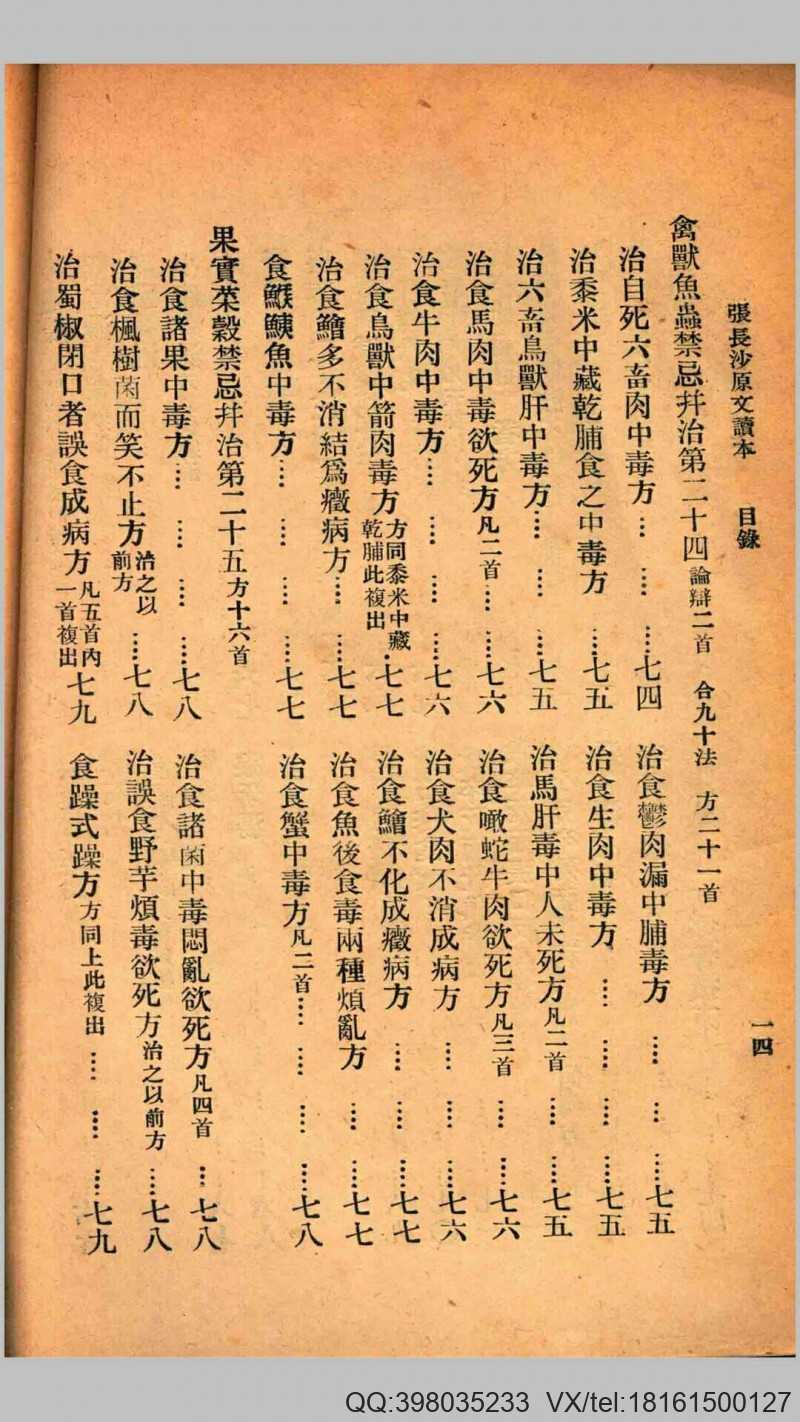 張長沙原文讀本 目錄 一四
禽獸魚蟲禁忌并治第二十四 論辯二首 合九十法 方二十一首
治自死六畜肉中毒方…………七四
治食鬱肉漏中脯毒方…………七五
治黍米中藏乾脯食之中毒方……七五
治食生肉中毒方…………七五
治六畜鳥獸肝中毒方…………七五
治馬肝毒中人未死方凡二首…………七五
治食馬肉中毒欲死方凡二首…………七六
治食噉蛇牛肉欲死方凡三首…………七六
治食牛肉中毒方…………七六
治食犬肉不消成病方…………七六
治食鳥獸中箭肉毒方方同黍米中藏乾脯此複出……七七
治食鱠不化成癥病方…………七七
治食鱠多不消結為癥病方…………七七
治食魚後食毒兩種煩亂方…………七七
食鯸鮧魚中毒方…………七七
治食蟹中毒方凡二首…………七八
果實菜穀禁忌并治第二十五方十六首
治食諸果中毒方…………七八
治食諸菌中毒悶亂欲死方凡四首……七八
治食楓樹菌而笑不止方治之以前方……七八
治誤食野芋煩毒欲死方治之以前方……七八
治蜀椒閉口者誤食成病方凡五首內一首複出七九
食躁式躁方方同上此複出…………七九
QQ:398035233 VX/tel:18161500127